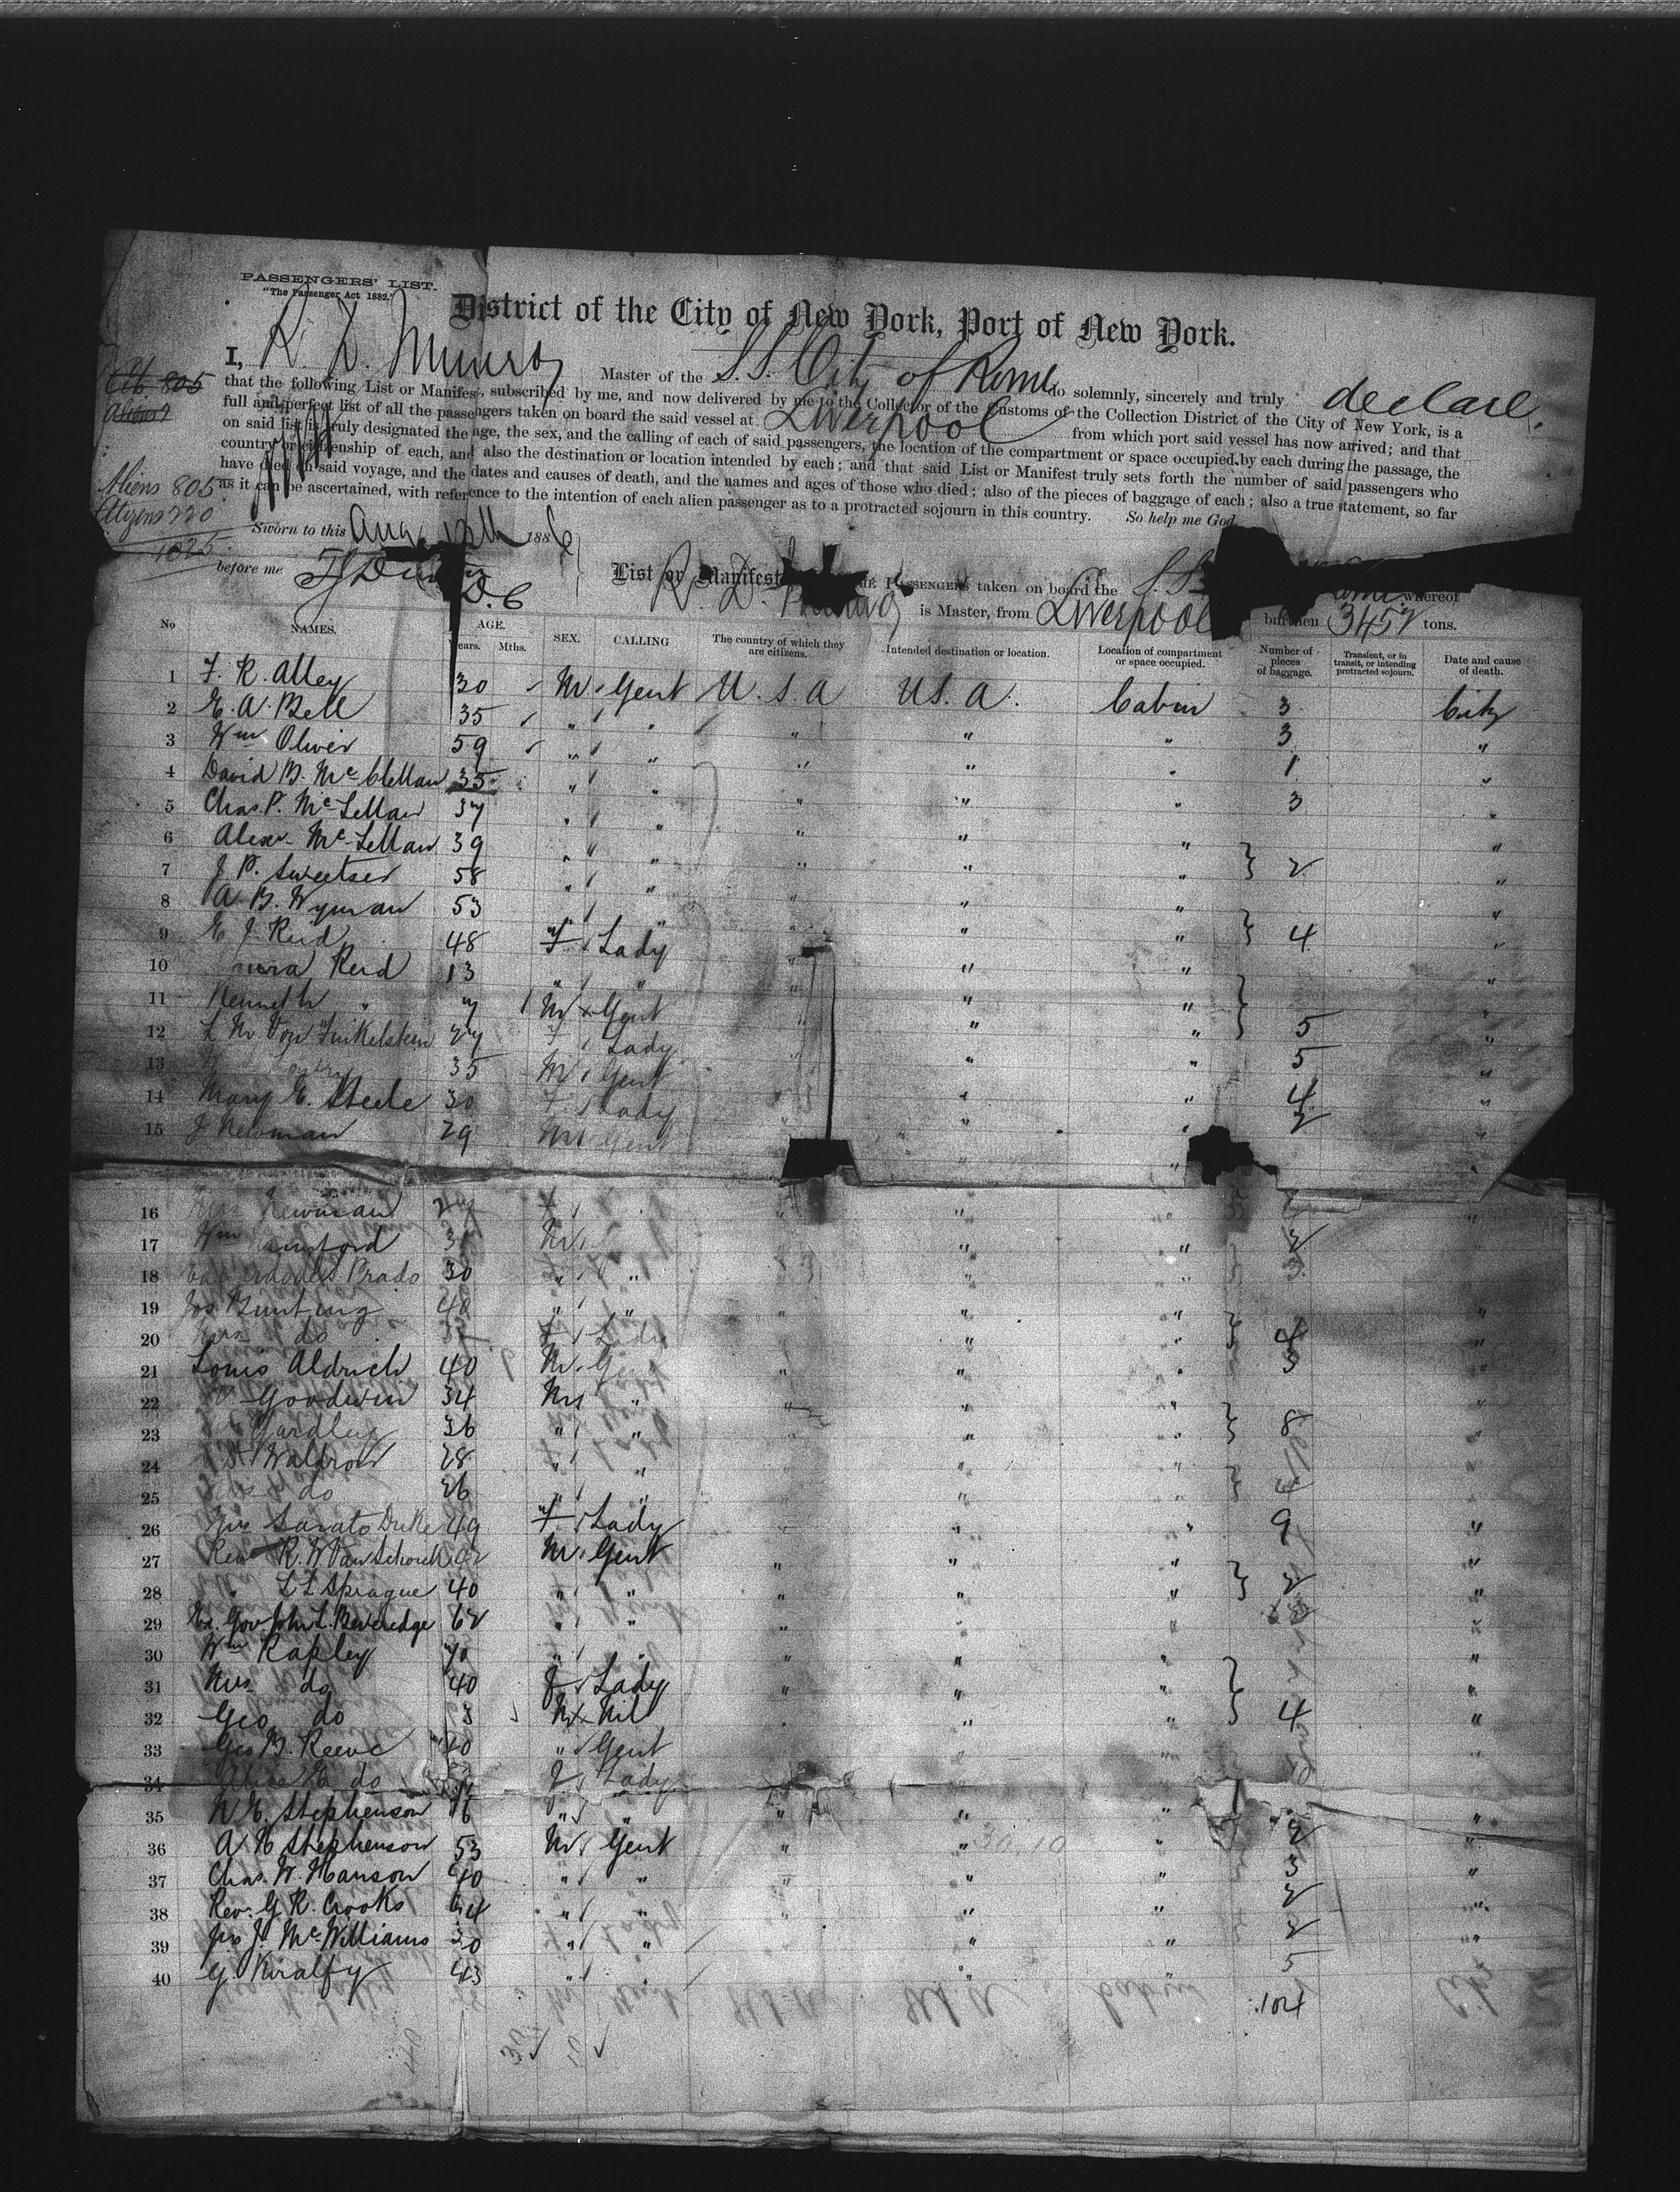 PASSENGERS' LIST.
"The Passenger Act 1882."
District of the City of New York, Port of New York.
I, R. D. Munro Master of the S.S. City of Rome do solemnly, sincerely and truly declare,
that the following List or Manifest, subscribed by me, and now delivered by me to the Collector of the Customs of the Collection District of the City of New York, is a
full and perfect list of all the passengers taken on board the said vessel at Liverpool from which port said vessel has now arrived; and that
on said list is truly designated the age, the sex, and the calling of each of said passengers, the location of the compartment or space occupied by each during the passage, the
country or citizenship of each, and also the destination or location intended by each; and that said List or Manifest truly sets forth the number of said passengers who
have died on said voyage, and the dates and causes of death, and the names and ages of those who died; also of the pieces of baggage of each; also a true statement, so far
as it can be ascertained, with reference to the intention of each alien passenger as to a protracted sojourn in this country. So help me God
Cit 805
Aliens 805
Citizens 220
1025
Sworn to this Aug 12th 1886
before me D.C
List or Manifest PASSENGERS taken on board the S.S. whereof
R. D. Munro is Master, from Liverpool burthen 3452 tons.
No NAMES. AGE. Years. Mths. SEX. CALLING The country of which they are citizens. Intended destination or location. Location of compartment or space occupied. Number of pieces of baggage. Transient, or in transit, or intending protracted sojourn. Date and cause of death.
1 F. R. Alley 30 M Gent U.S.A U.S.A. Cabin 3 City
2 E. A. Bell 35 " " " " " 3 "
3 Wm Oliver 59 " " " " " 1 "
4 David B. McClellan 35 " " " " " 3 "
5 Chas. P. McLellan 37 " " " " " "
6 Alexr McLellan 39 " " " " " 2 "
7 J. P. Sweetser 58 " " " " " "
8 A. B. Wyman 53 " " " " " 4 "
9 E J. Reid 48 F Lady " " " "
10 Reid 13 " " " " " "
11 Kenneth " 7 M Gent " " " 5 "
12 L M. Von Finkelstein 27 F Lady " " " 5 "
13 35 M Gent " " " 4 "
14 Mary E. Steele 30 F Lady " " " 2 "
15 J Newman 29 M Gent " " "
16 Mrs Newman 27 F " " "
17 Wm 3 M " " 2 "
18 Prado 30 " " " " " 3 "
19 Jos Bunting 40 " " " " " "
20 Mrs do F Lady " " " 4 "
21 Louis Aldrich 40 M Gent " " " 3 "
22 Goodwin 34 M " " " " "
23 Yardley 36 " " " " " 8 "
24 Waldron 28 " " " " " "
25 do 26 " " " " " 4 "
26 Duke 49 F Lady " " " 9 "
27 Rev R. W Van Schoick M Gent " " " "
28 " L L Sprague 40 " " " " " 2 "
29 Ex. Gov. John L. Beveridge 62 " " " " " "
30 Wm Rapley 70 " " " " " "
31 Mrs do 40 F Lady " " " "
32 Geo do 3 M Nil " " " 4 "
33 Geo B. Reeve 40 " Gent " " " "
34 Alice E do F Lady
35 N. E. Stephenson 16 " " " " " "
36 A N Stephenson 53 M Gent " " " 2 "
37 Chas. W. Hanson 40 " " " " " 3 "
38 Rev. G R. Crooks 64 " " " " " 2 "
39 Jas J. McWilliams 30 " " " " " 2 "
40 G. Kiralfy 43 " " " " 5
104